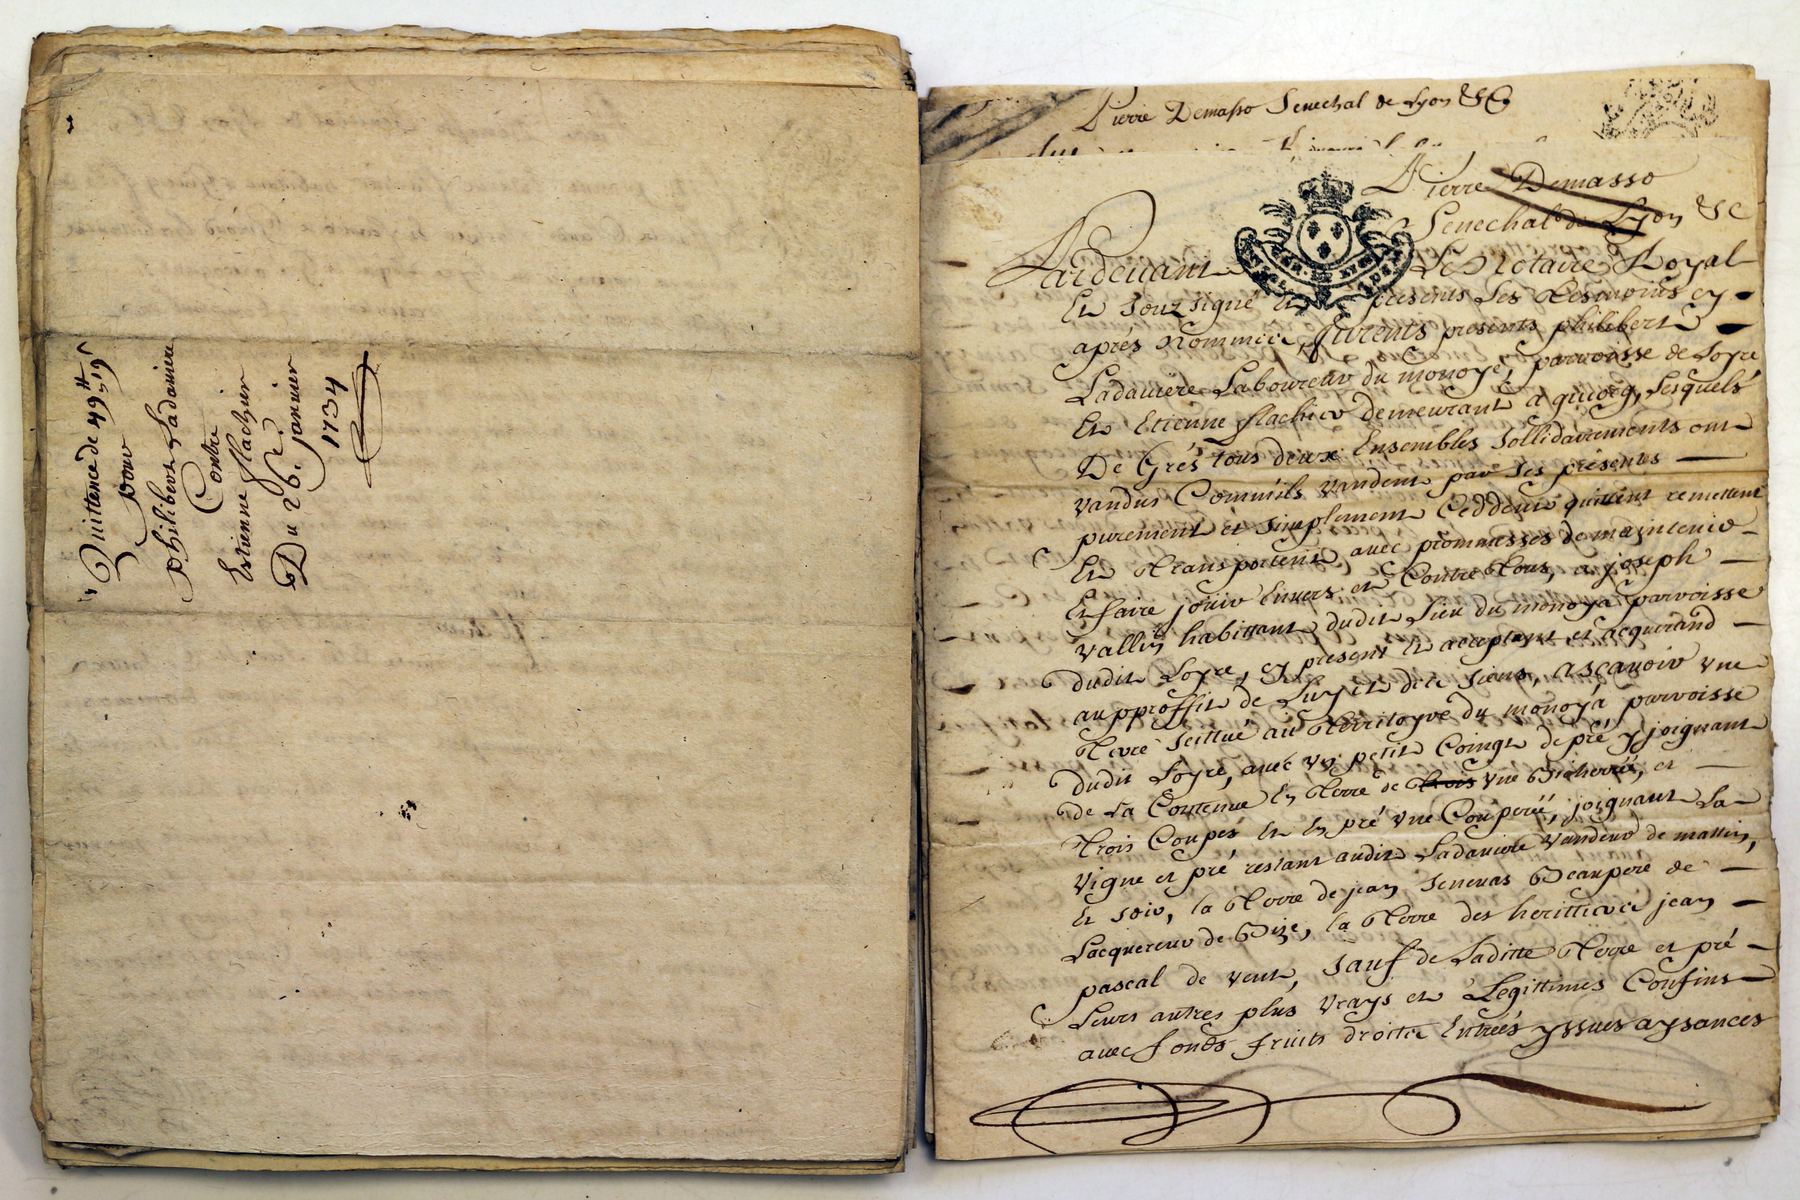 Quittence de 49ᴴ 19ˢ
pour
philibert Ladaviere
Contre
Estienne flachier
Du 26.e janvier
1734
Pierre Demasso Senechal de Lyon &C
Pierre Demasso
Senechal de Lyon &c
Pardevant Le Notaire Royal
Et Souzsigné Et presents Les Tesmoins cy
après Nommée, furents presents philibert
Ladaviere Laboureur du monoyé, parroisse de Soyre
Et Etienne flachier demeurant a quiocq, Lesquels
De Grés tous deux Ensembles Sollidairements ont
vandus Comm'ils vandent par Ses présentes
purement et Simplement Ceddent quittent remettent
Et Transportent avec prommesses de maintenir
Et faire jouir Envers et Contre Tous, a joseph
vallin habittant dudit Lieu du monoya parroisse
dudit Soyre, Cy present Et acceptant et acquerand
au pproffit de Luy et des Siens, ascavoir vne
Terre Scittué au Territoyre du monoya parroisse
dudit Soyre, avec vn petit Coingt de pré y joignant
de La Contenue En Terre de Trois vne Bicherée, et
Trois Coupés Et En pré vne Couperée, joignant La
vigne et pré restant audit Ladaviere vandeur de mattin,
Et Soir, la Terre de jean Senevas Beaupere de
Lacquereur de Bize, la Terre des herittiers jean
pascal de vent, Sauf de Laditte Terre et pré
Leurs autres plus vrays et Legittimes Confins
avec fonds fruits droits Entrées yssues aysances